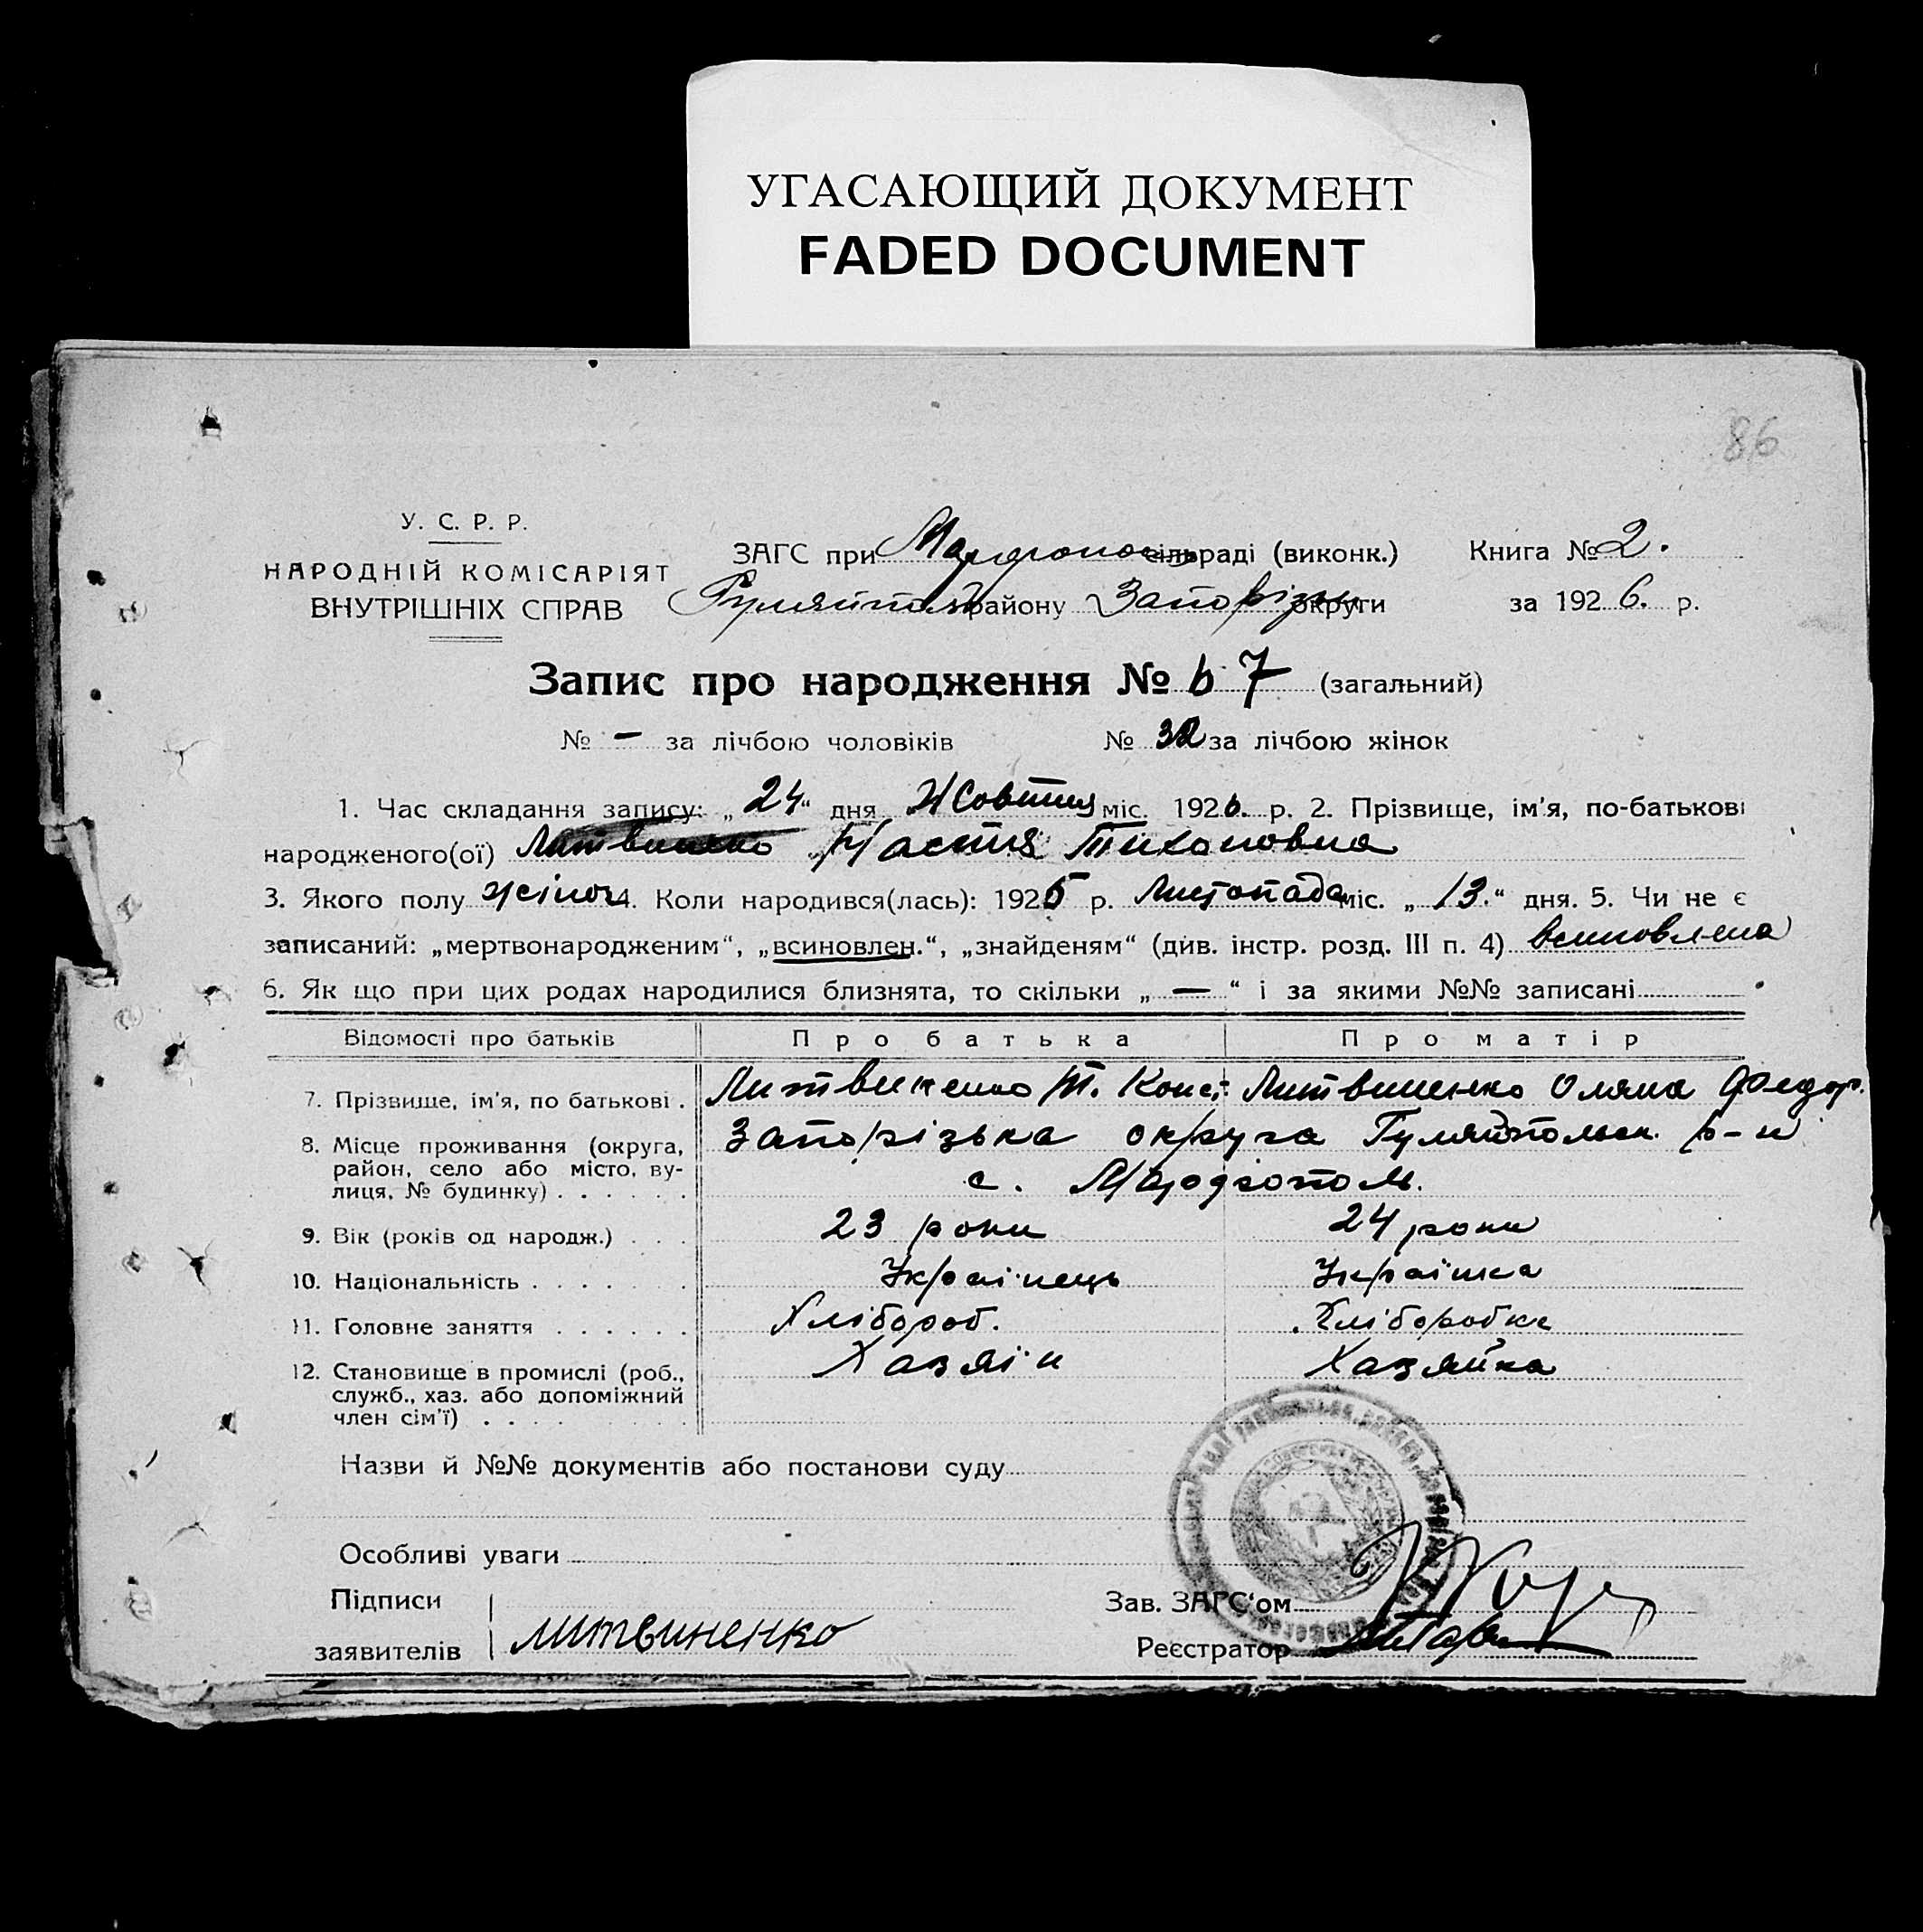 УГАСАЮЩИЙ ДОКУМЕНТ
FADED DOCUMENT
86
У. С. Р. Р.
НАРОДНІЙ КОМІСАРІЯТ
ВНУТРІШНІХ СПРАВ
ЗАГС при сільраді (виконк.) Книга № 2.
району Запорізьк округи за 1926. р.
Запис про народження № 67 (загальний)
№ - за лічбою чоловіків № 32 за лічбою жінок
1. Час складання запису: „24“ дня Жовтня міс. 1926. р. 2. Прізвище, ім'я, по-батькові
народженого(ої) Литвиненко Настя Тихоновна
3. Якого полу жіноч 4. Коли народився(лась): 1925 р. Листопада міс. „13.“ дня. 5. Чи не є
записаний: „мертвонародженим“, „всиновлен.“, „знайденям“ (див. інстр. розд. III п. 4) всиновлена
6. Як що при цих родах народилися близнята, то скільки „—“ і за якими №№ записані
Відомості про батьків Про батька Про матір
7. Прізвище, ім'я, по батькові . Литвиненко Т. Конст. Литвиненко Оляна Федор.
8. Місце проживання (округа, Запорізька округа Гуляйпольськ. р-н
район, село або місто, ву-
лиця, № будинку) . . . . . . с.
9. Вік (років од народж.) . . . 23 роки 24 роки
10. Національність . . . . . . Українець Українка
11. Головне заняття . . . . . . Хлібороб. Хліборобка
12. Становище в промислі (роб., Хазяїн Хазяйка
служб., хаз. або допоміжний
член сім'ї) . . . .
Назви й №№ документів або постанови суду
Особливі уваги
Підписи
Зав. ЗАГС'ом
заявителів Литвиненко
Реєстратор